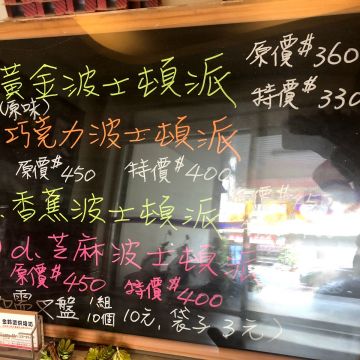 黃金波士頓派 原價$360
(原味) 特價$330
巧克力波士頓派
原價$450 特價$400
香蕉波士頓派
d.芝麻波士頓派
原價$450 特價$400
需叉盤 1組10個10元,袋子2元)